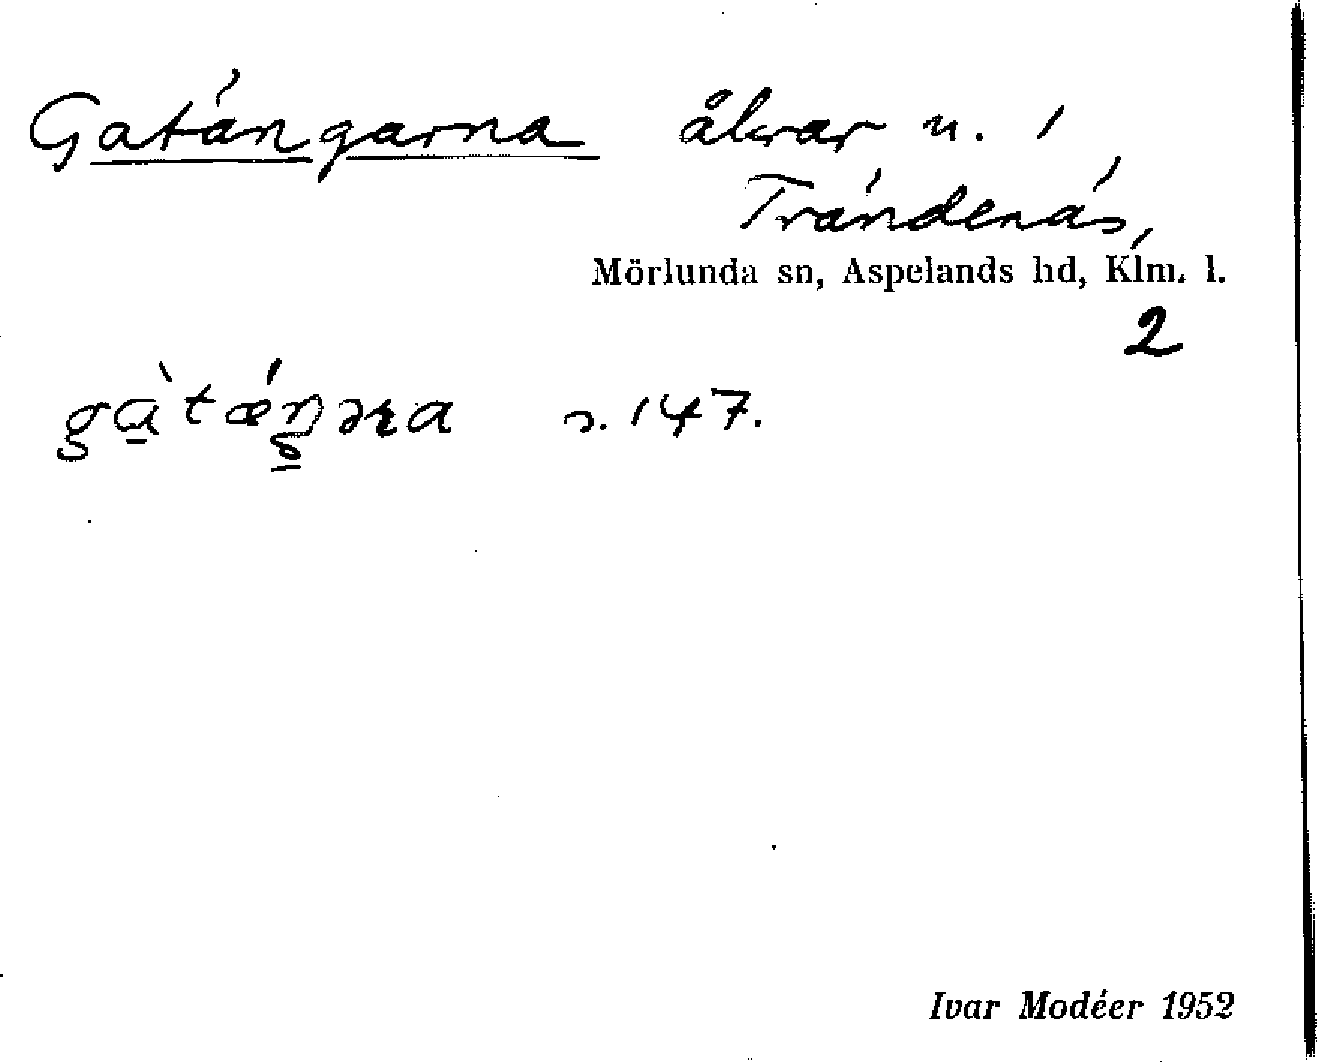 Gatängarna åkrar u. 1
Trändenäs,
Mörlunda sn, Aspelands hd, Klm. l.
2
s. 147.
Ivar Modéer 1952